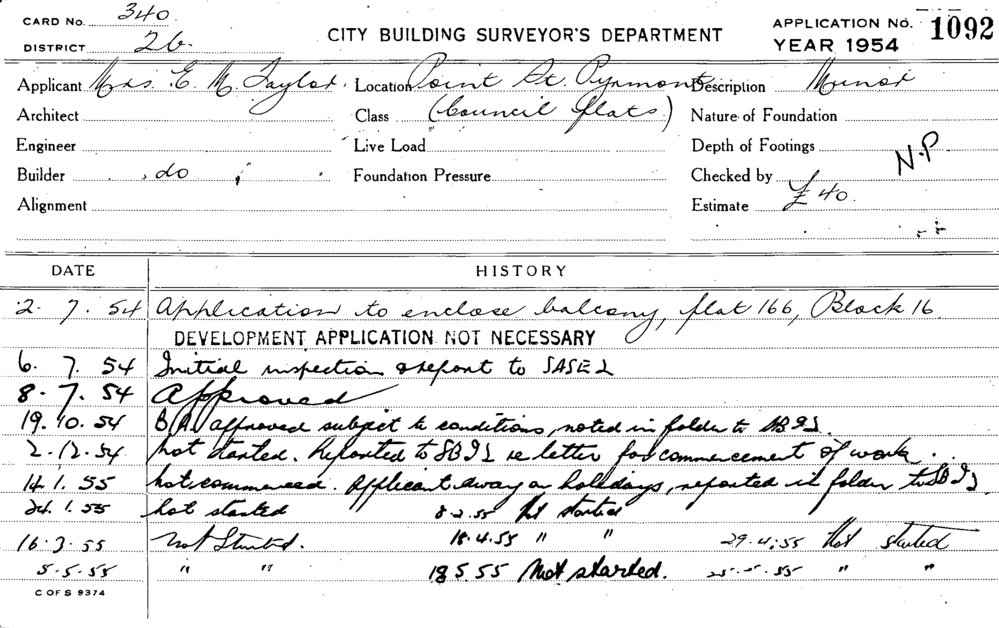 CARD No. 340
DISTRICT 26.
CITY BUILDING SURVEYOR'S DEPARTMENT
APPLICATION No. 1092
YEAR 1954
Applicant Mrs. E. M. Taylor. Location Point St. Pyrmont Description Minor
Architect Class (Council flats) Nature of Foundation
Engineer Live Load Depth of Footings
N.P
Builder do Foundation Pressure Checked by
Alignment Estimate £40.
DATE HISTORY
2. 7. 54 Application to enclose balcony, flat 166, Block 16
DEVELOPMENT APPLICATION NOT NECESSARY
6. 7. 54 Initial inspection & report to
8. 7. 54 Approved
19. 10. 54 B.A. approved subject to conditions, noted in folder to SBI2.
2. 12. 54 Not started. Reported to SBI2 re letter for commencement of work.
14. 1. 55 Not commenced. Applicant away on holidays, reported in folder to SBI2
24. 1. 55 Not started 8.2.55 Not started
16. 3. 55 Not Started. 18.4.55 " " 29.4.55 Not started
5. 5. 55 " " 18 5.55 Not started. " "
C OF S 9374